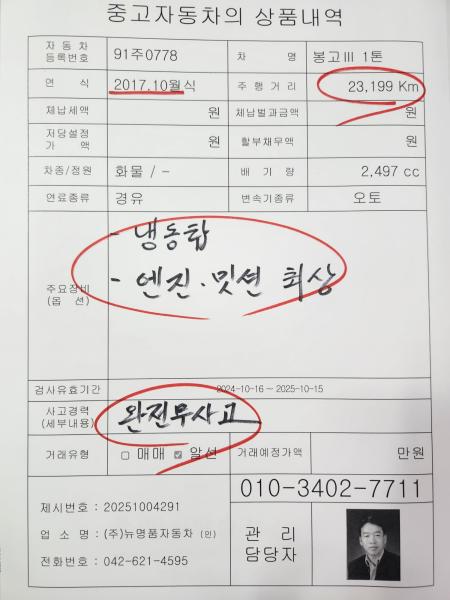 중고자동차의 상품내역
자동차등록번호 91주0778 차 명 봉고Ⅲ 1톤
연 식 2017.10월식 주행거리 23,199 Km
체납세액 원 체납벌과금액 원
저당설정가 액 원 할부채무액 원
차종/정원 화물 / - 배 기 량 2,497 cc
연료종류 경유 변속기종류 오토
주요장비(옵 션)
- 냉동탑
- 엔진.밋션 최상
검사유효기간 2024-10-16 ~ 2025-10-15
사고경력(세부내용) 완전무사고
거래유형 □ 매매 ☑ 알선 거래예정가액 만원
제시번호 : 20251004291
업 소 명 : (주)뉴명품자동차 (인)
전화번호 : 042-621-4595
010-3402-7711
관 리
담당자